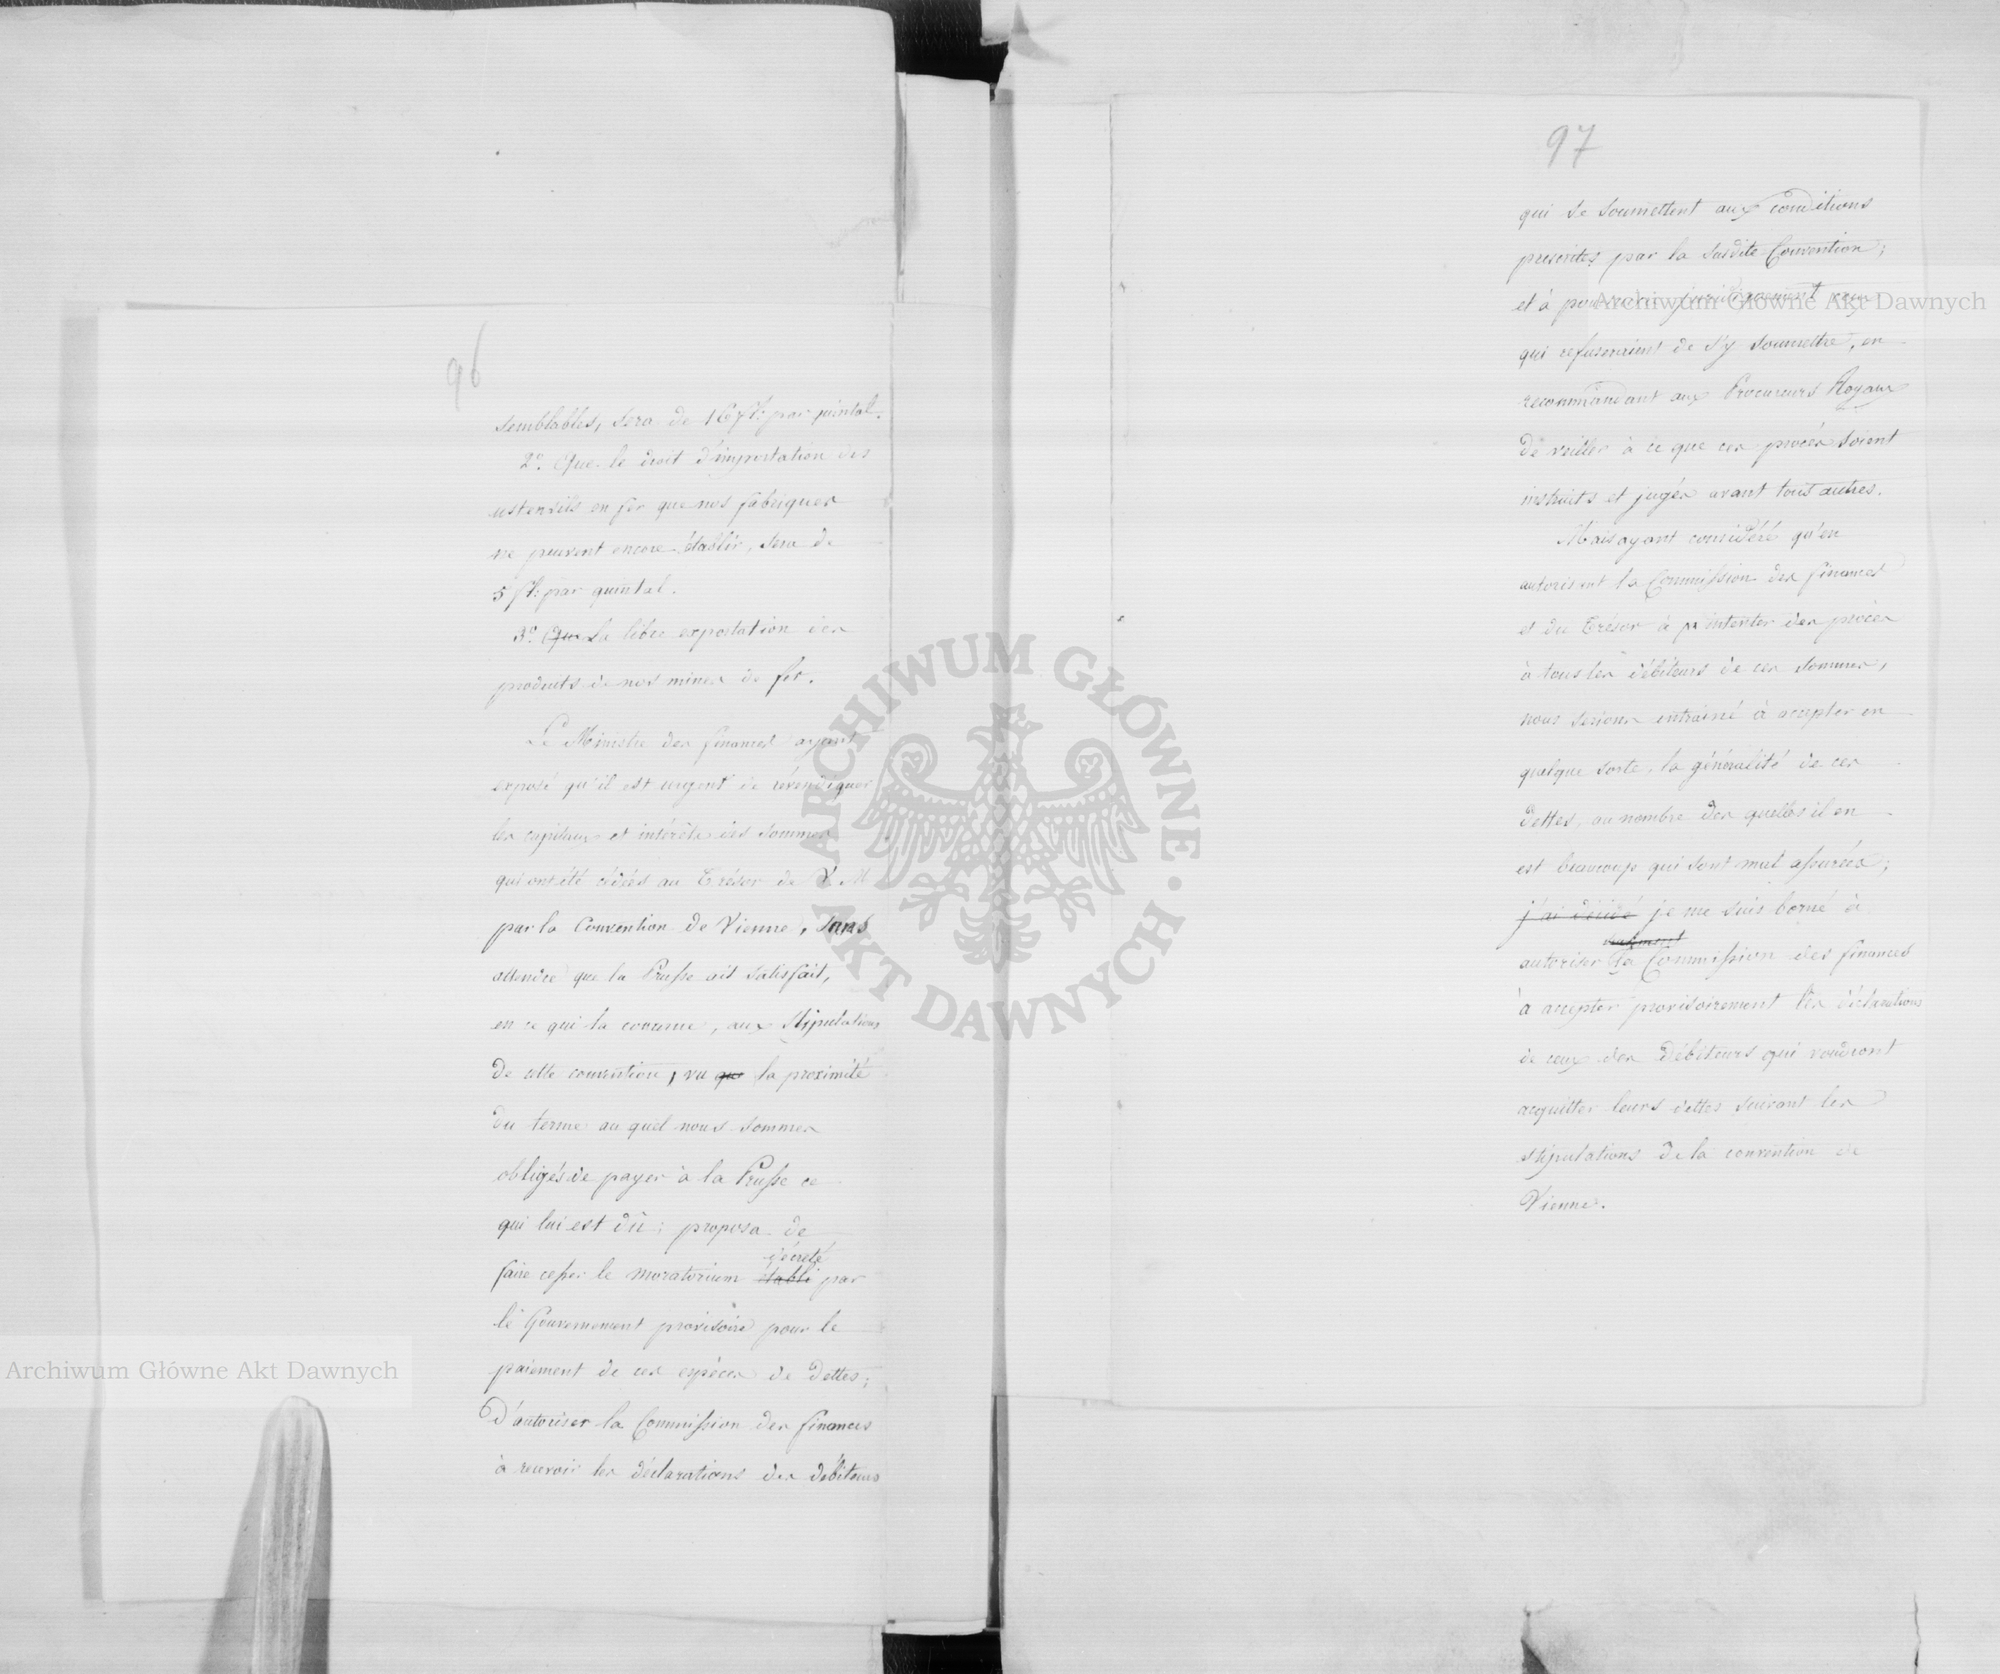 96
semblables, sera de 16 fl: par quintal.
2º. Que le droit d'importation des
ustensils en fer que nos fabriques
ne peuvent encore établir, sera de
5 fl: par quintal.
3º. Que La libre exportation des
produits de nos mines de fer.
Le Ministre des finances ayant
exposé qu'il est urgent de révendiquer
les capitaux et intérêts des sommes
qui ont été cédées au Trésor de V. M
par la Convention de Vienne, sans
attendre que la Prusse ait satisfait,
en ce qui la concerne, aux stipulations
de cette convention, vu que la proximité
du terme au quel nous sommes
obligés de payer à la Prusse ce
qui lui est dû; proposa de
décreté
faire cesser le moratorium établi par
le Gouvernement provisoire pour le
paiement de ces espèces de dettes;
D'autoriser la Commission des finances
à recevoir les déclarations des débiteurs
97
qui se soumettent aux conditions
prescrites par la susdite Convention;
et à poursuivre juridiquement ceux
qui refuseraient de s'y soumettre, en
recommandant aux Procureurs Royaux
de veiller à ce que ces procès soient
instruits et jugés avant tous autres.
Mais ayant considéré qu'en
autorisant la Commission des finances
et du Trésor à intenter des procès
à tous les débiteurs de ces sommes,
nous serions entrainé à accepter en
quelque sorte, la généralité de ces
dettes, au nombre des quelles il en
est beaucoup qui sont mal assurées;
j'ai décidé je me suis borné à
seulement
autoriser la Commission des finances
à accepter provisoirement les déclarations
de ceux des débiteurs qui voudront
acquitter leurs dettes suivant les
stipulations de la convention de
Vienne.
Archiwum Główne Akt Dawnych
Archiwum Główne Akt Dawnych
ARCHIWUM GŁÓWNE · AKT DAWNYCH ·